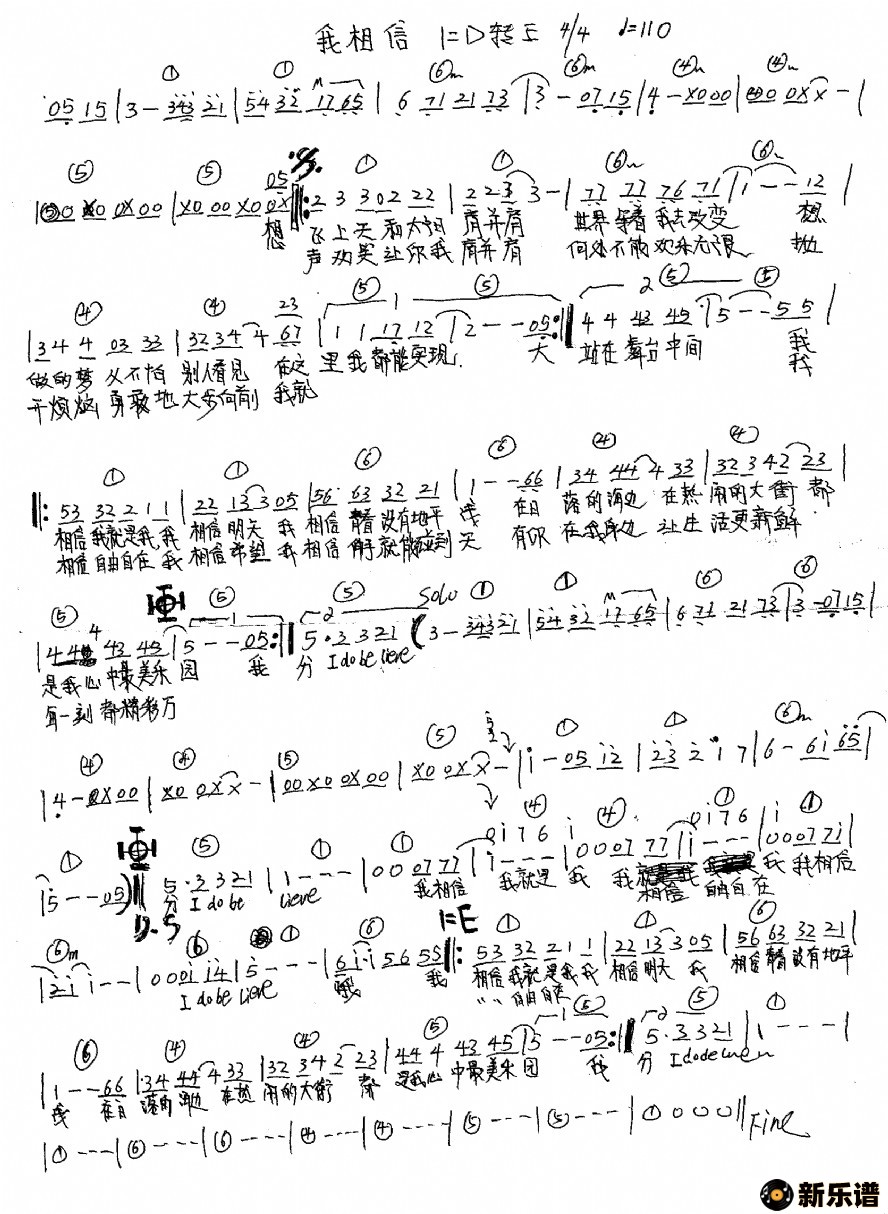 我相信 1=D转E 4/4 ♩=110
① ① ⑥m ⑥m ④ ④
05 15 | 3 - 343 21 | 54 32 17 65 | 6 71 21 73 | 3 - 07 15 | 4 - x0 00 | 00 0x x - |
⑤ ⑤ 05 ① ① ⑥
00 x0 0x 00 | x0 00 x0 0x ‖: 2 3 302 22 | 2 23 3 - | 77 77 76 71 | 1 - - 12 |
想 飞上天 和太阳 肩并肩 世界等着我去改变 想
声欢笑让你我肩并肩 何处不能欢乐无限 抛
④ ④ 23 1 ⑤ ⑤ 2 ⑤ ⑤
| 3 4 4 03 33 | 32 34 4 67 | 1 1 17 12 | 2 - - 05 :‖ 4 4 43 45 | 5 - - 5 5 |
做的梦 从不怕 别人看见 在这里我都能实现 大 站在舞台中间 我
开烦恼 勇敢地大步向前 我就 我
① ① ⑥ ⑥ ④ ④
‖: 53 32 2 1 1 | 22 13 3 05 | 56 63 32 21 | 1 - - 66 | 34 44 4 33 | 32 3 42 23 |
相信我就是我我相信明天 我相信青春没有地平线 在日落的海边 在热闹的大街 都
相信自由自在我相信希望 我相信伸手就能碰到天 有你在我身边 让生活更新鲜
⑤ ⑤ 1 2 ⑤ Solo ① ① ⑥ ⑥
4 43 45 | 5 - - 05 :‖ 5·3 321 ( 3 - 343 21 | 54 32 17 65 | 6 71 21 73 | 3 - 07 15 |
是我心中最美乐园 我 分 I do believe
每一刻都精彩万
④ ④ ⑤ ⑤ ① ① ⑥m
| 4 - 0x 00 | x0 0x x - | 00 x0 0x 00 | x0 0x x - | 1 - 05 12 | 23 2 1 7 | 6 - 61 65 |
① ⑤ ① ① ④ ④ ① ①
| 5 - - 05 ) ‖ 5·3 321 | 1 - - - | 0 0 07 77 | 1 - - - | 0 0 07 77 | 1 - - - | 0 0 07 71 |
0 1 7 6 1 0 1 7 6 1
分 I do be lieve 我相信 我就是 我 我相信 自由自在 我 我相信
D.S
⑥m ① ⑥ 1=E ① ① ⑥
| 21 1 - - | 0 0 01 14 | 5 - - - | 61 1 56 55 ‖: 53 32 2 1 1 | 22 13 3 05 | 56 63 32 21 |
I do be lieve 哦 我 相信我就是我我相信明天 我 相信青春没有地平
〃 自由自在
⑥ ④ ④ ⑤ 1 ⑤ 2 ⑤ ①
| 1 - - 66 | 34 44 4 33 | 32 34 2 23 | 44 4 43 45 | 5 - - 05 :‖ 5·3 321 | 1 - - - |
线 在日 落的海边 在热 闹的大街 都 是我心中最美乐园 我 分
| ① - - - | ⑥ - - - | ⑥ - - - | ④ - - - | ④ - - - | ⑤ - - - | ⑤ - - - | ① 0 0 0 0 ‖ Fine
新乐谱